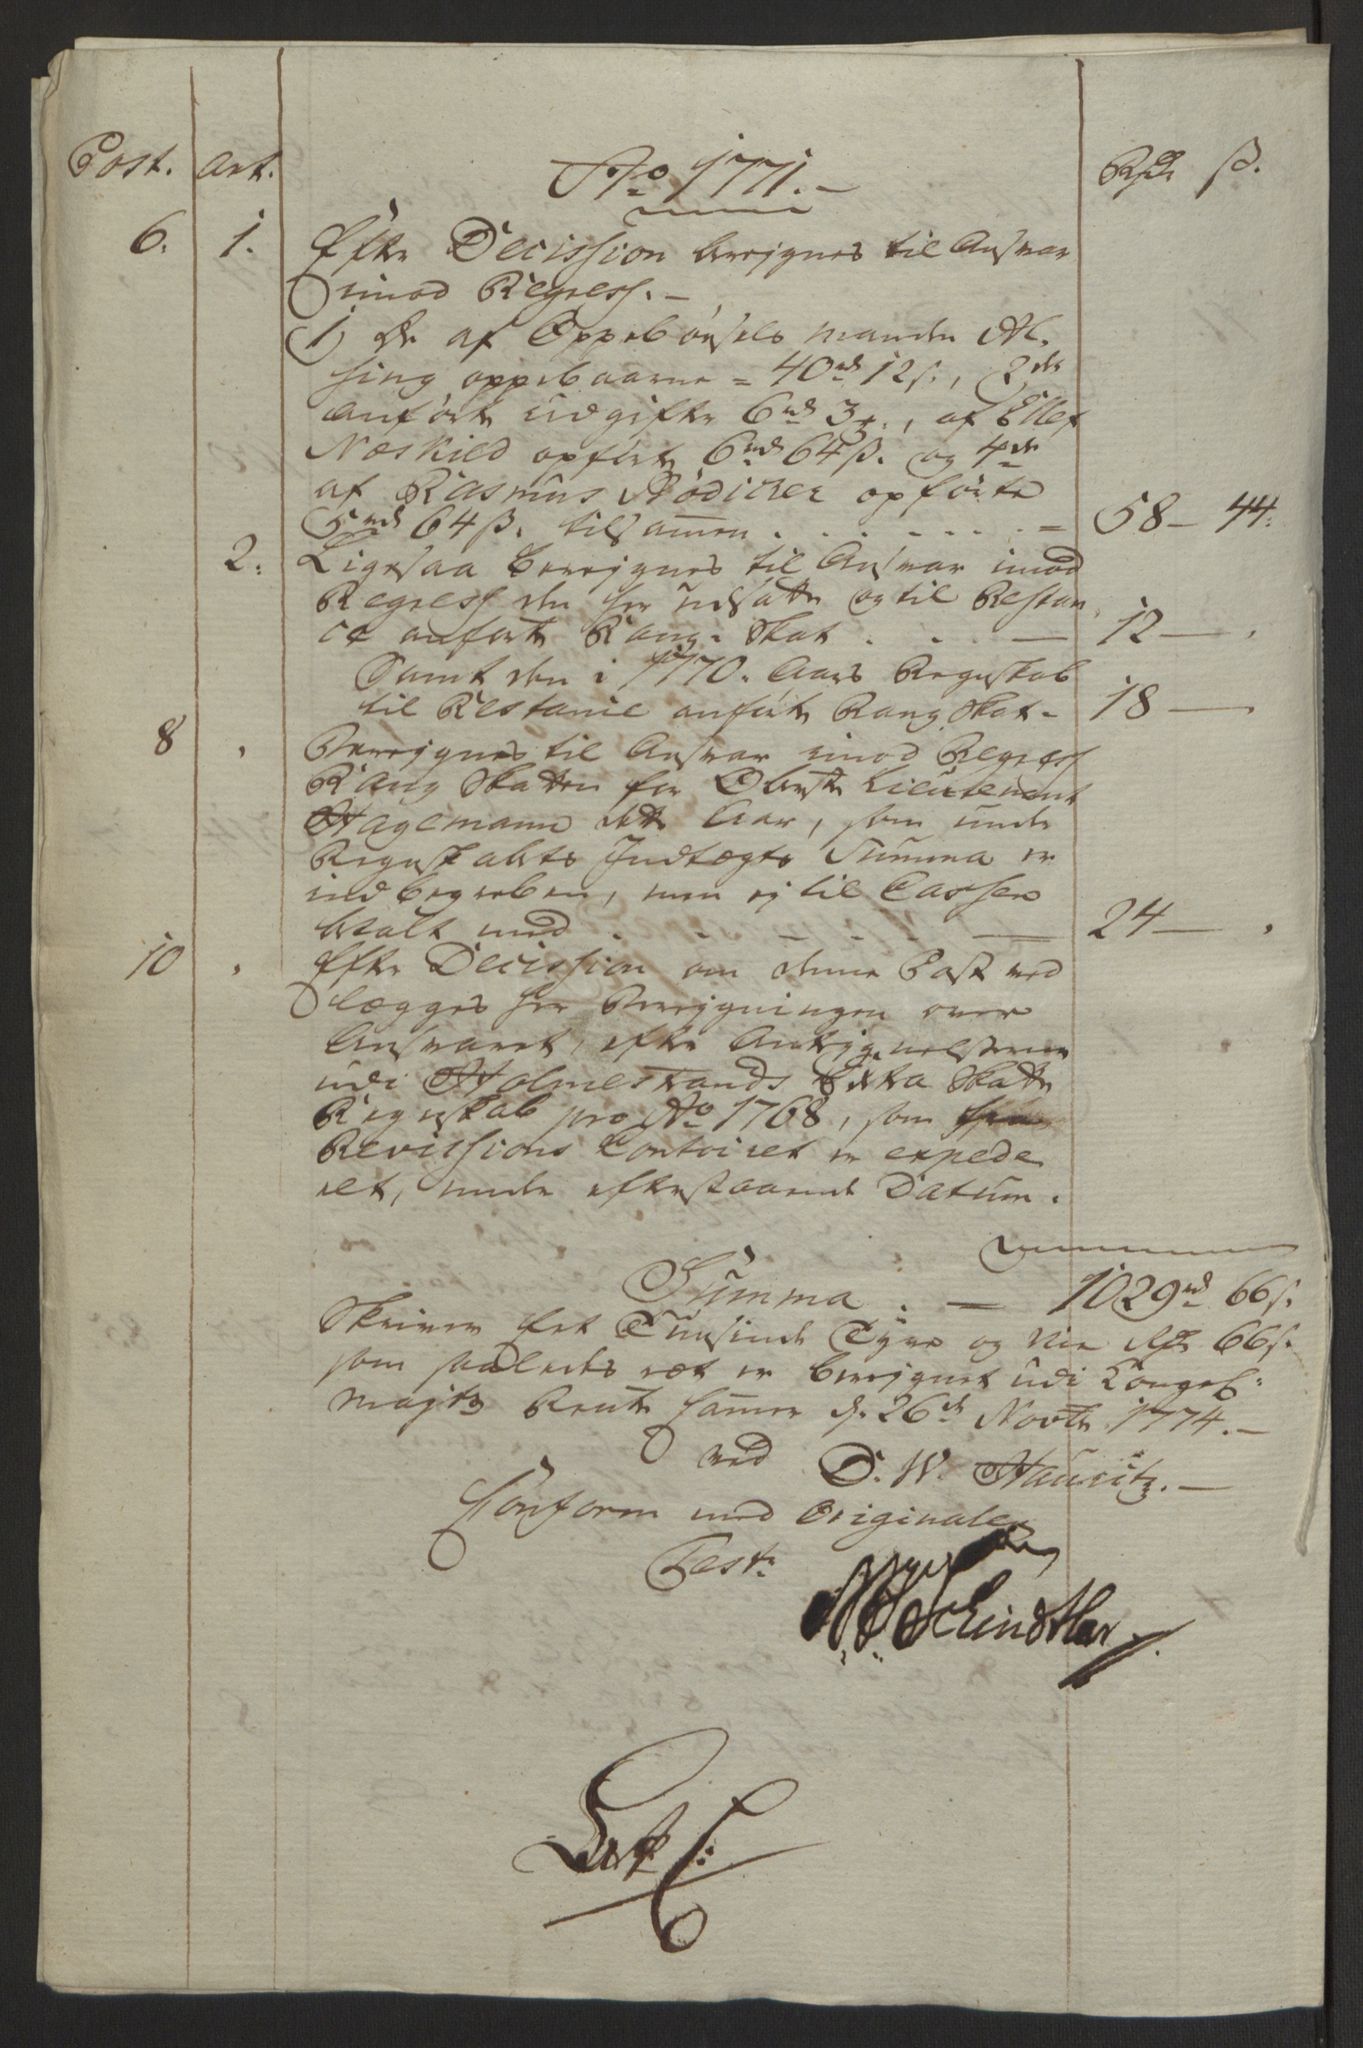 Post. Art. Ao 1771. Rdr ß.
6. 1. Efter Decission beregnes til Ansvar
imod Regress.
1) De af Oppebørsels manden Al-
sing oppebaarne = 40rd 12s., 2de
anførte Udgifter 6rd 3, af Ellef
Næskild opført 6rd 64ß. og 4de
af Rasmus Rödicker opførte
5rd 64ß. tilsammen . . . . = 58 – 44.
2. Ligesaa beregnes til Ansvar imod
Regress den her udsatte og til Restan
ce anførte Rang-Skat . . . — 12 — .
Samt den i 1770. Aars Regnskab
til Restance anførte Rang Skat – 18 —
8 . Beregnes til Ansvar imod Regress
Rang Skatten for Oberst Lieutenant
Hagemann dette Aar, som under
Regnskabets Indtægts Summa er
indbegreben, men ej til Cassen
betalt med . . . — 24 — .
10 . Efter Decission om denne Post ved
lægges her Beregningen over
Ansvaret, efter Antegnelserne
udi Holmestrands Extra Skatte
Regnskab pro Ao 1768, som fra
Revissions Contoiret er expede
ret, under efterstaaende Datum.
Summa . — 1029rd 66s.
Skriver Et Tusinde Tyve og Nie Rdr 66s.
som saaledes ret er beregnet udi Kongel:
Majts Rente Kammer d. 26de Novbr 1774. –
ved D. W. Hauritz. –
Conform med Originalen
Test:
Schindtler